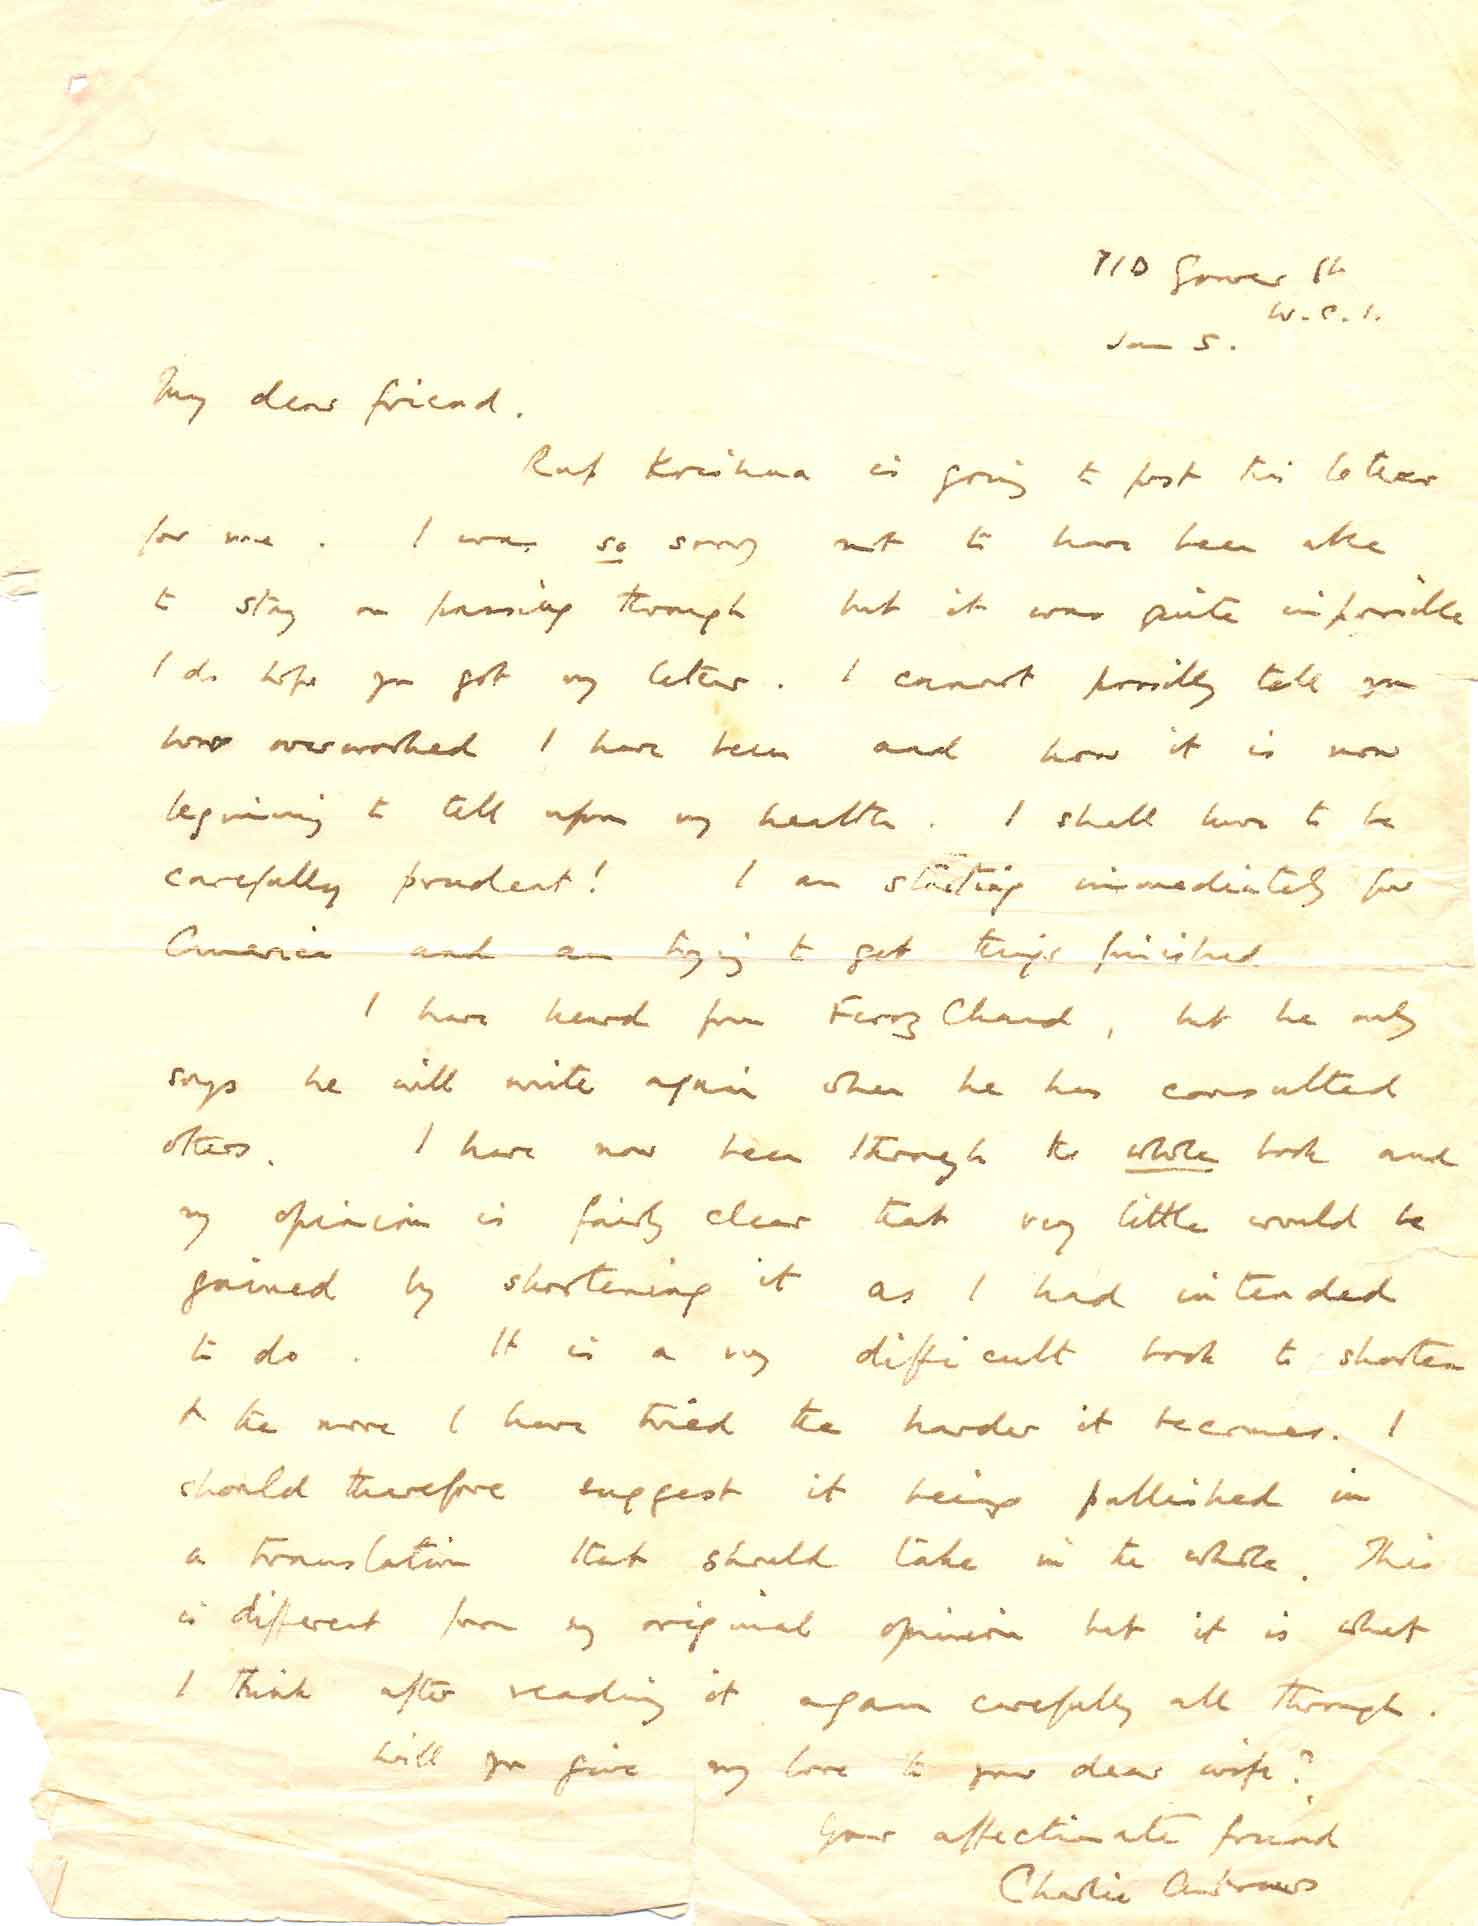 71D Gower St
W.C.1.
Jan 5.
My dear friend.
Rup Krishna is going to post this letter
for me. I was so sorry not to have been able
to stay on passing through but it was quite impossible
I do hope you got my letter. I cannot possibly tell you
how overworked I have been and how it is now
beginning to tell upon my health. I shall have to be
carefully prudent! I am starting immediately for
America and am trying to get things finished
I have heard from Feroz Chand, but he only
says he will write again when he has consulted
others. I have now been through the whole book and
my opinion is fairly clear that very little would be
gained by shortening it as I had intended
to do. It is a very difficult book to shorten
& the more I have tried the harder it becomes. I
should therefore suggest it being published in
a translation that should take in the whole. This
is different from my original opinion but it is what
I think after reading it again carefully all through.
Will you give my love to your dear wife?
Your affectionate friend
Charlie Andrews